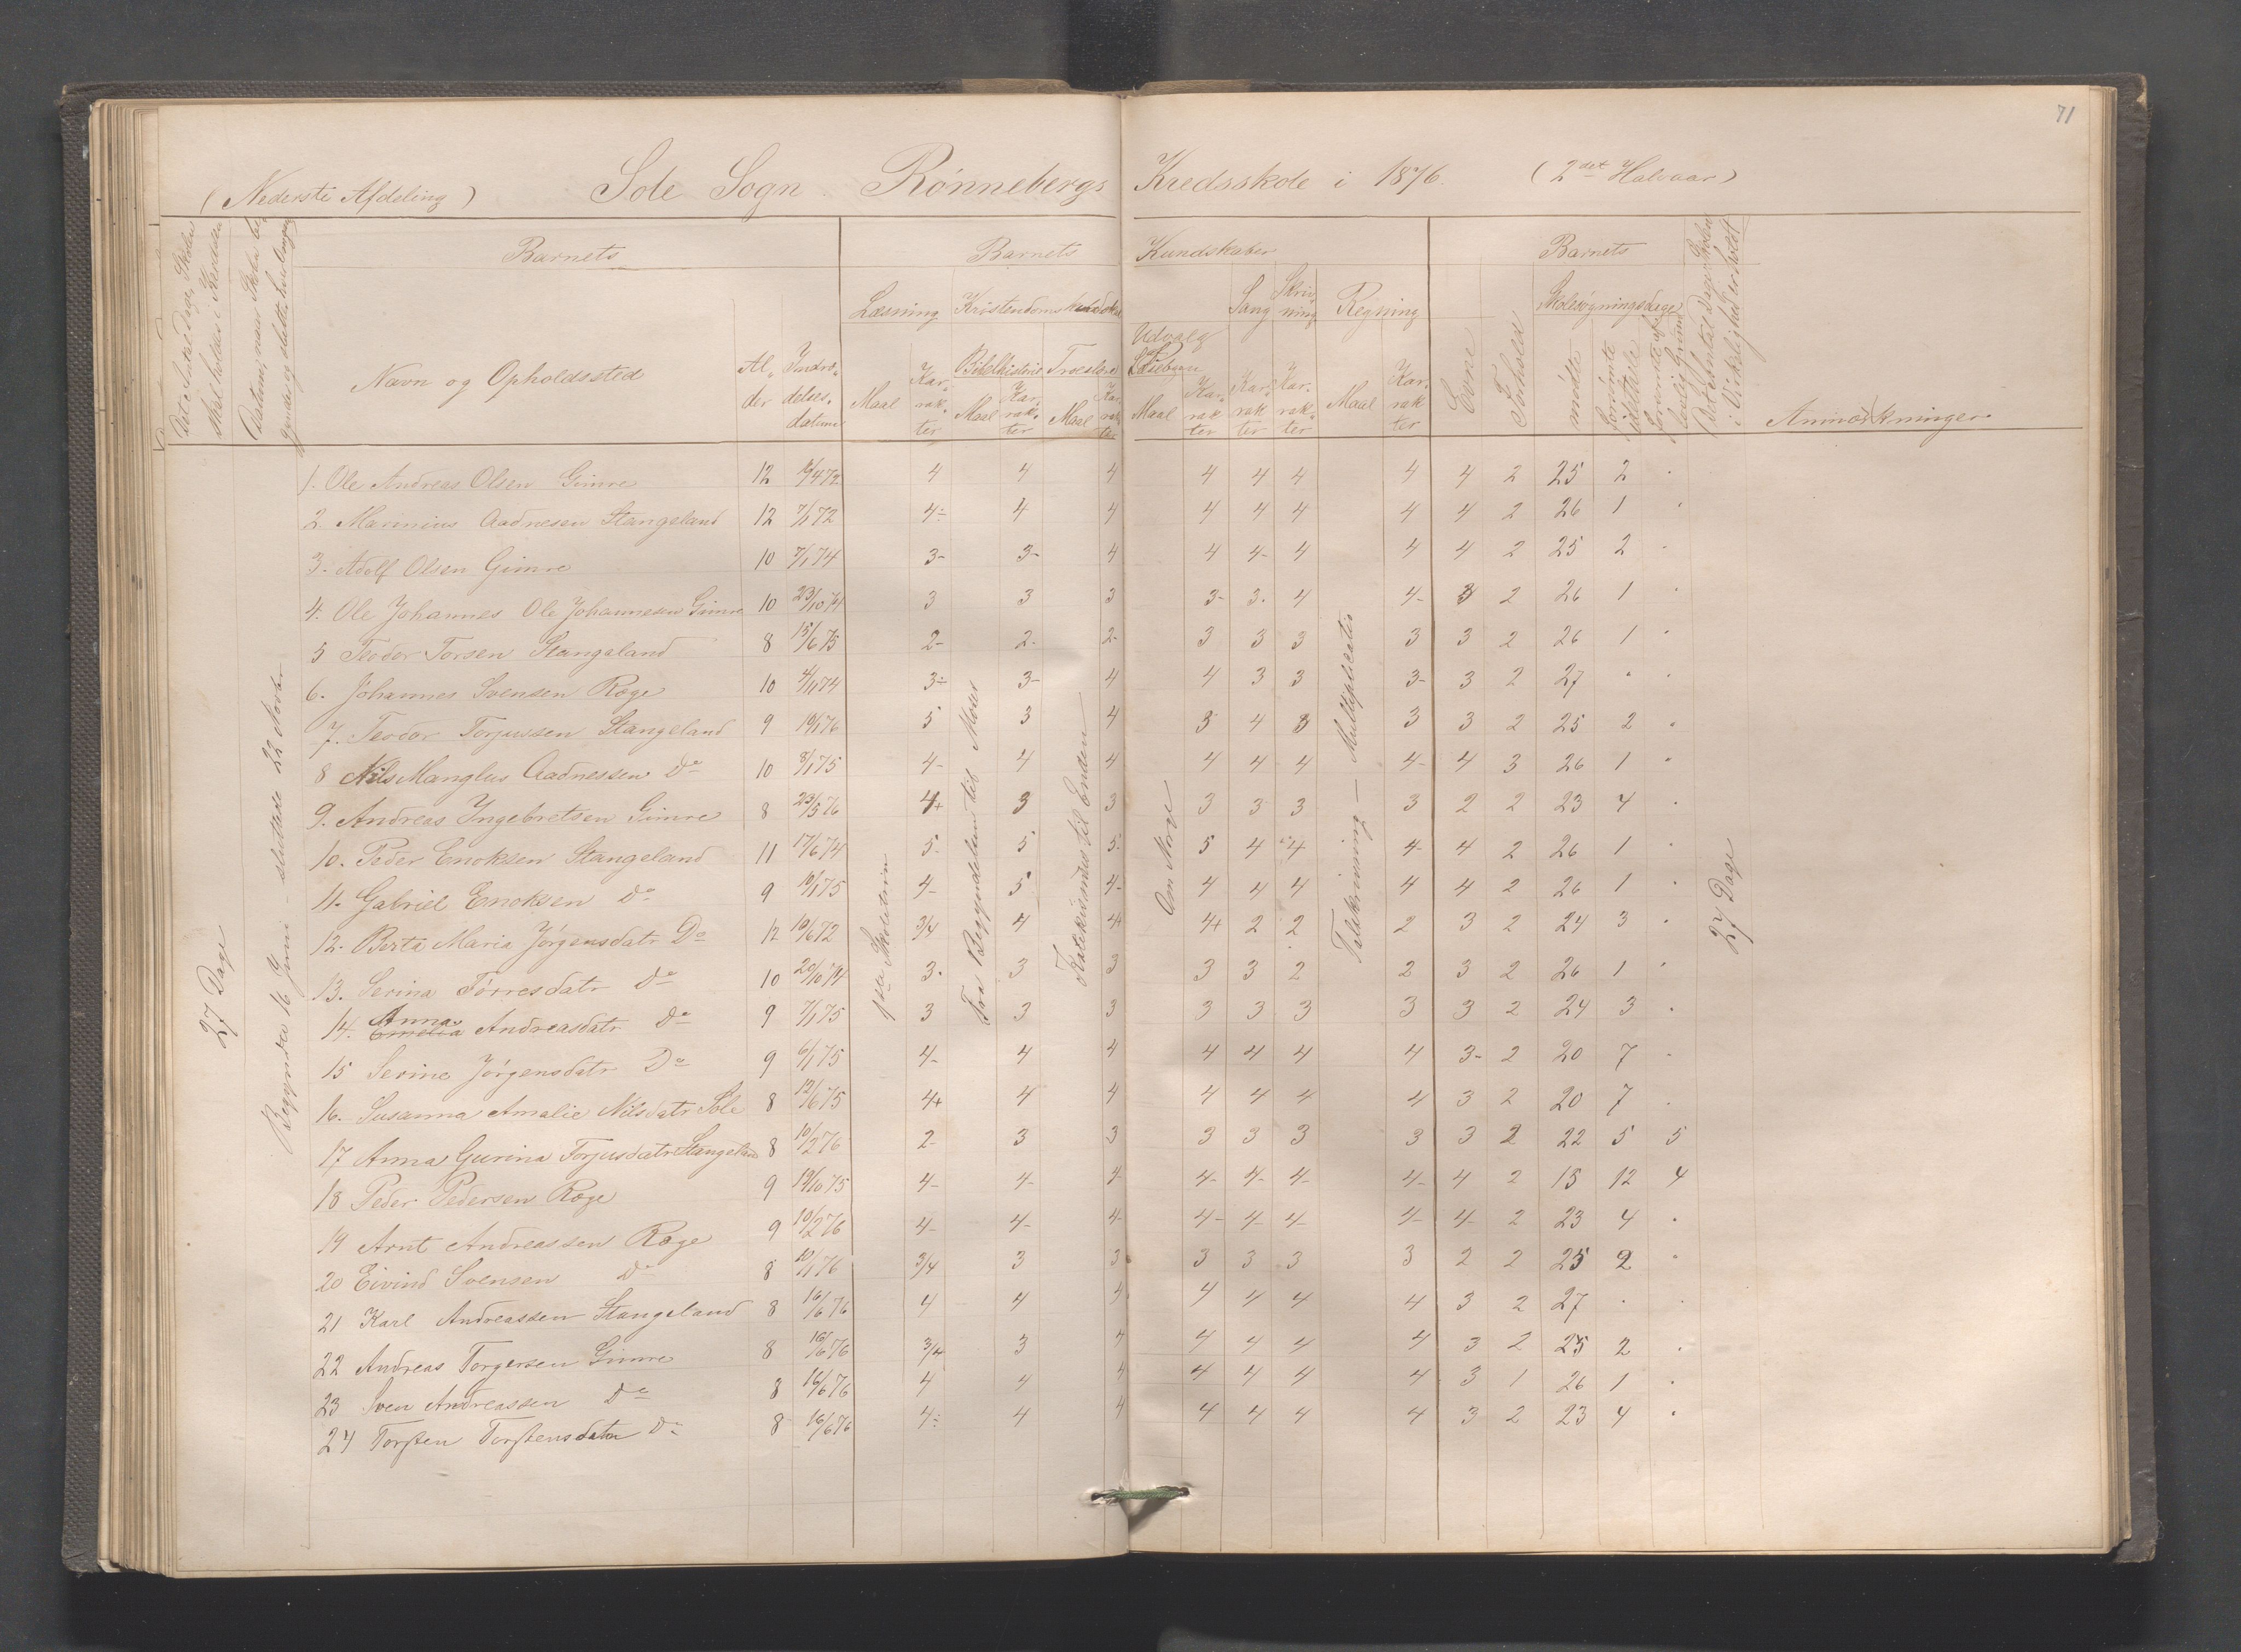 71
(Nederste Afdeling) Sole Sogn Rønnebergs Kredsskole i 1876. (2det Halvaar)
Det Antal Dage, Skolen skal holdes i Kredsen
Datum, naar Skolen begyndes og slutter hver Omgang
Barnets
Barnets Kundskaber
Barnets
Det Antal Dage Skolen i Virkelighed er holdt
Læsning Kristendomskundskab Udvalg af Læsebogen Sang Skrivning Regning
Skolesøgningsdage
Bibelhistorie Troeslære
Navn og Opholdssted Alder Indtrædelsesdatum
Maal Karakter Maal Karakter Maal Karakter Maal Karakter Karakter Karakter Maal Karakter
Evne Forhold mødte forsømte i det Hele forsømte af lovlig Grund
Anmærkninger
27 Dage
Begyndte 16 Juni - sluttede 22 Novbr
1ste Skoletrin
Fra Begyndelsen til Moses
Katekismus til Enden
Om Norge
Talskrivning - Multiplicatio
27 Dage
1. Ole Andreas Olsen Gimre 12 4 4 4 4 4 4 4 4 2 25 2 "
2. Marinius Aadnesen Stangeland 12 7/1 72 4÷ 4 4 4 4 4 4 4 2 26 1 "
3. Adolf Olsen Gimre 10 7/1 74 3- 3- 4 4 4- 4 4 4 2 25 2 "
4. Ole Johannes Ole Johannesen Gimre 10 23/10 74 3 3 3 3- 3. 4 4- 3 2 26 1 "
5 Teodor Torsen Stangeland 8 15/6 75 2- 2- 2- 3 3 3 3 3 2 26 1 "
6. Johannes Svensen Røge 10 4/11 74 3÷ 3- 4 4 3 3 3- 3 2 27 " "
7. Teodor Torjussen Stangeland 9 10/1 76 5 3 4 3 4 3 3 3 2 25 2 "
8 Nils Manglus Aadnessen Do 10 8/1 75 4- 4 4 4 4 4 4- 4 3 26 1 "
9. Andreas Ingebretsen Gimre 8 23/5 76 4+ 3 3 3 3 3 3 2 2 23 4 "
10. Peder Enoksen Stangeland 11 17/6 74 5- 5 5- 5 4 4 4- 4 2 26 1 "
11. Gabriel Enoksen Do 9 10/1 75 4- 5 4- 4 4 4 4 4 2 26 1 "
12. Berta Maria Jørgensdatr Do 12 10/6 72 3/4 4 4 4+ 2 2 2 3 2 24 3 "
13. Serina Tørresdatr Do 10 20/10 74 3. 3 3 3 3 2 2 3 2 26 1 "
14. Anna Emelia Andreasdatr Do 9 7/1 75 3 3 3 3 3 3 3 3 2 24 3 "
15 Serine Jørgensdatr Do 9 6/1 75 4- 4 4 4 4 4 4 3- 2 20 7 "
16. Susanna Amalie Nilsdatr Sole 8 12/6 75 4+ 4 4 4 4 4 4 3 2 20 7 "
17 Anna Gurina Torjusdatr Stangeland 8 10/2 76 2- 3 3 3 3 3 3 3 2 22 5 5
18 Peder Pedersen Røge 9 12/10 75 4- 4- 4- 4- 4- 4- 4- 4 2 15 12 4
19 Arnt Andreassen Røge 9 10/2 76 4- 4- 4- 4- 4- 4- 4- 4- 2 23 4 "
20 Eivind Svensen Do 8 10/1 76 3/4 3 3 3 3 3 3 2 2 25 2 "
21 Karl Andreassen Stangeland 8 16/6 76 4 4 4 4 4 4 4 3 2 27 " "
22 Andreas Torgersen Gimre 8 16/6 76 3/4 3 4 4 4 4 4 3 2 25 2 "
23 Sven Andreassen Do 8 16/6 76 4 4 4 4 4 4 4 3 1 26 1 "
24 Torsten Torstensdatr Do 8 16/6 76 4÷ 4 4 4 4 4 4 3 2 23 4 "